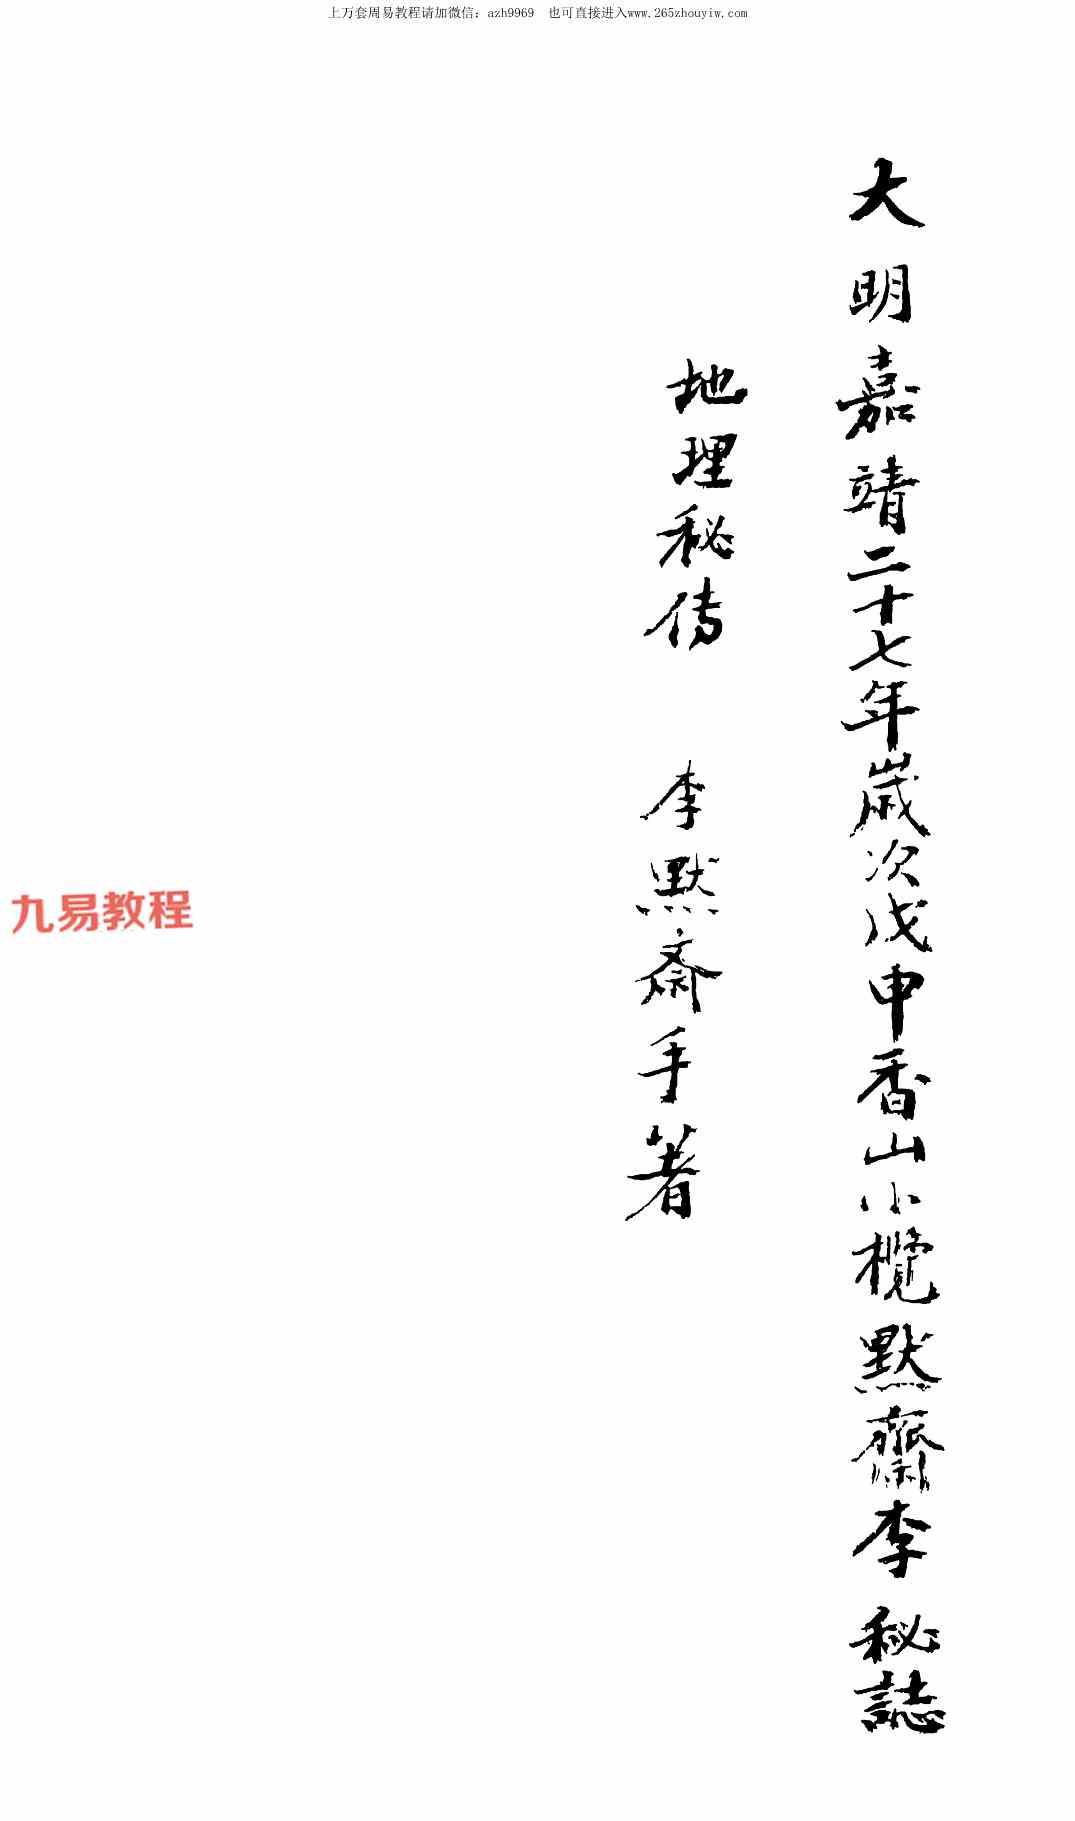 上万套周易教程请加微信：azh9969 也可直接进入www.265zhouyiw.com
大明嘉靖二十七年歲次戊申香山小欖默齋李秘誌
地理秘传 李默斋手著
九易教程